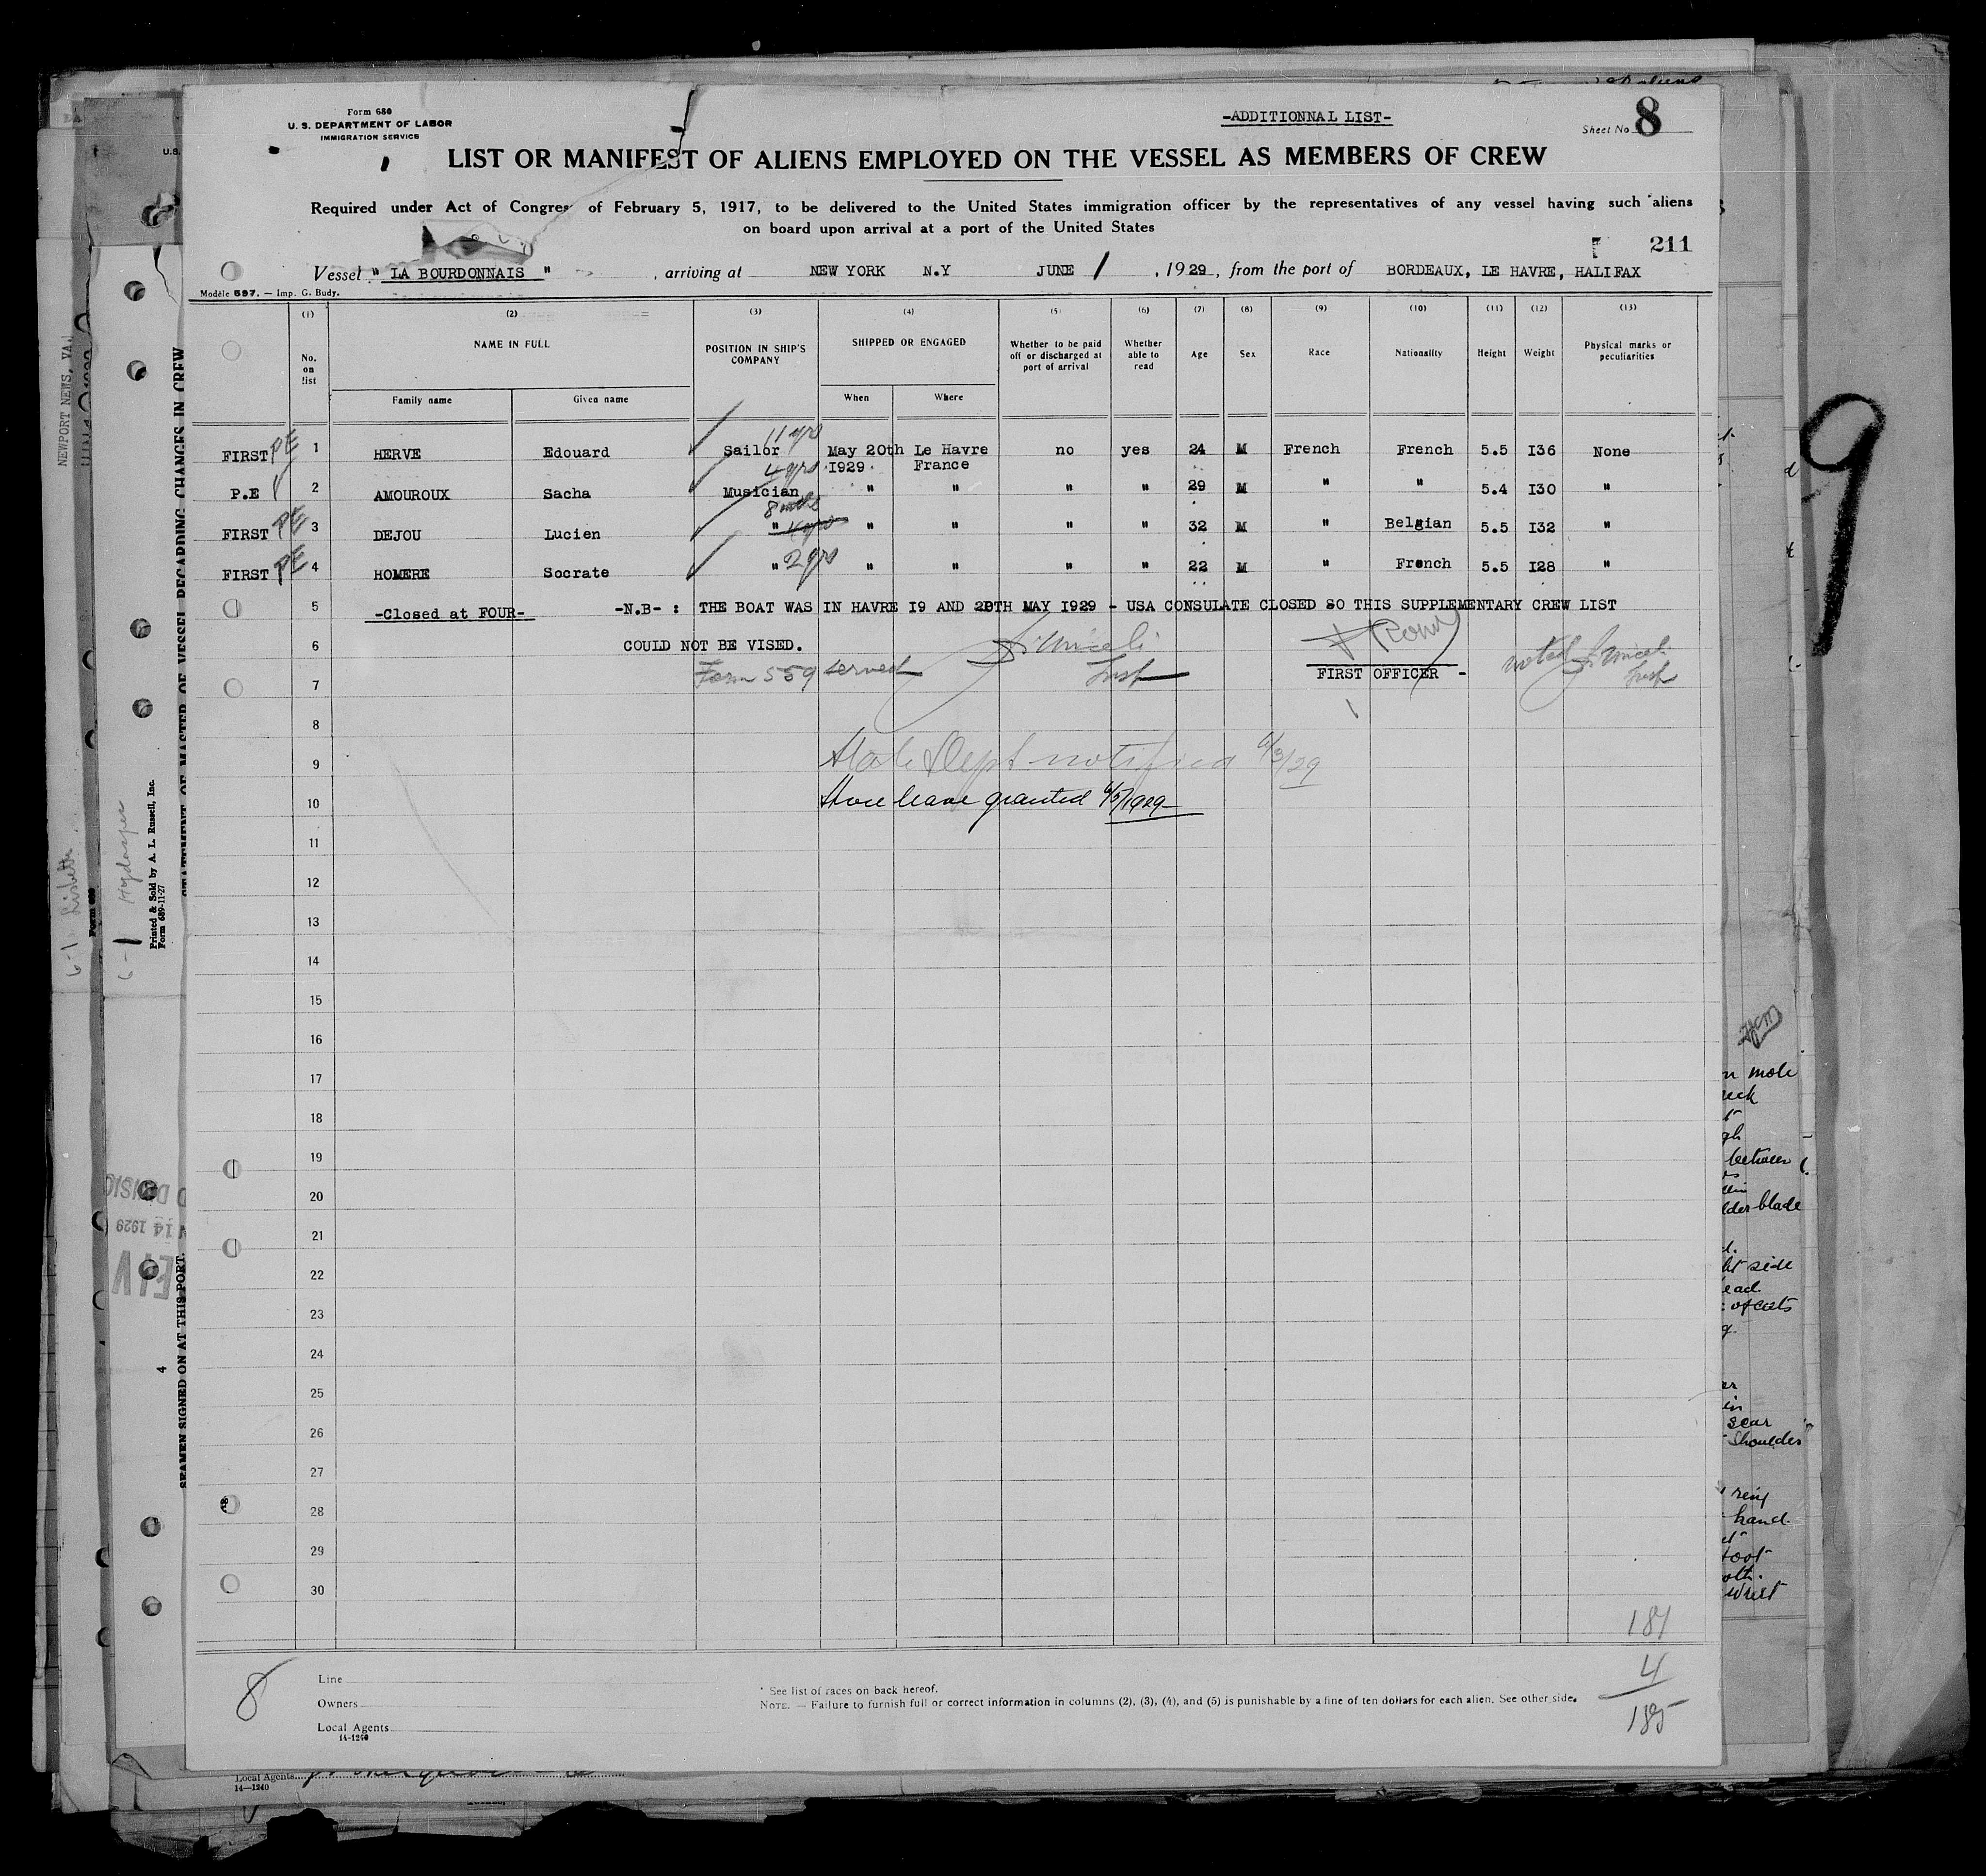 Form 680
U. S. DEPARTMENT OF LABOR
IMMIGRATION SERVICE
-ADDITIONNAL LIST-
Sheet No 8
LIST OR MANIFEST OF ALIENS EMPLOYED ON THE VESSEL AS MEMBERS OF CREW
Required under Act of Congress of February 5, 1917, to be delivered to the United States immigration officer by the representatives of any vessel having such aliens
on board upon arrival at a port of the United States
211
Vessel " LA BOURDONNAIS " , arriving at NEW YORK N.Y JUNE 1 , 1929, from the port of BORDEAUX, LE HAVRE, HALIFAX
Modèle 597. — Imp. G. Budy.
(1) (2) (3) (4) (5) (6) (7) (8) (9) (10) (11) (12) (13)
No. on list NAME IN FULL POSITION IN SHIP'S COMPANY SHIPPED OR ENGAGED Whether to be paid off or discharged at port of arrival Whether able to read Age Sex Race Nationality Height Weight Physical marks or peculiarities
Family name Given name When Where
11 yrs
FIRST PE 1 HERVE Edouard Sailor May 20th Le Havre no yes 24 M French French 5.5 I36 None
4 yrs 1929. France
P.E 2 AMOUROUX Sacha Musician " " " " 29 M " " 5.4 I30 "
8 mths
FIRST PE 3 DEJOU Lucien " 4 yrs " " " " 32 M " Belgian 5.5 I32 "
FIRST PE 4 HOMERE Socrate " 2 yrs " " " " 22 M " French 5.5 I28 "
5 -Closed at FOUR- -N.B- : THE BOAT WAS IN HAVRE I9 AND 20TH MAY I929 - USA CONSULATE CLOSED SO THIS SUPPLEMENTARY CREW LIST
6 COULD NOT BE VISED.
7 Form 559 served Insp FIRST OFFICER - noted Insp
8
9 State Dept notified 6/3/29
10 Shore leave granted 6/5/1929
11
12
13
14
15
16
17
18
19
20
21
22
23
24
25
26
27
28
29
30
184
4
185
8
Line
Owners
Local Agents
14-1240
* See list of races on back hereof.
NOTE. — Failure to furnish full or correct information in columns (2), (3), (4), and (5) is punishable by a fine of ten dollars for each alien. See other side.
9
NEWPORT NEWS, VA.
6-1 Hydaspes
Printed & Sold by A. L. Russell, Inc.
Form 689-11-27
STATEMENT OF MASTER OF VESSEL REGARDING CHANGES IN CREW
SEAMEN SIGNED ON AT THIS PORT.
4
14 1929
mole
between
blade
side
scar
shoulder
ring
hand.
foot
wrist
Local Agents
14—1240